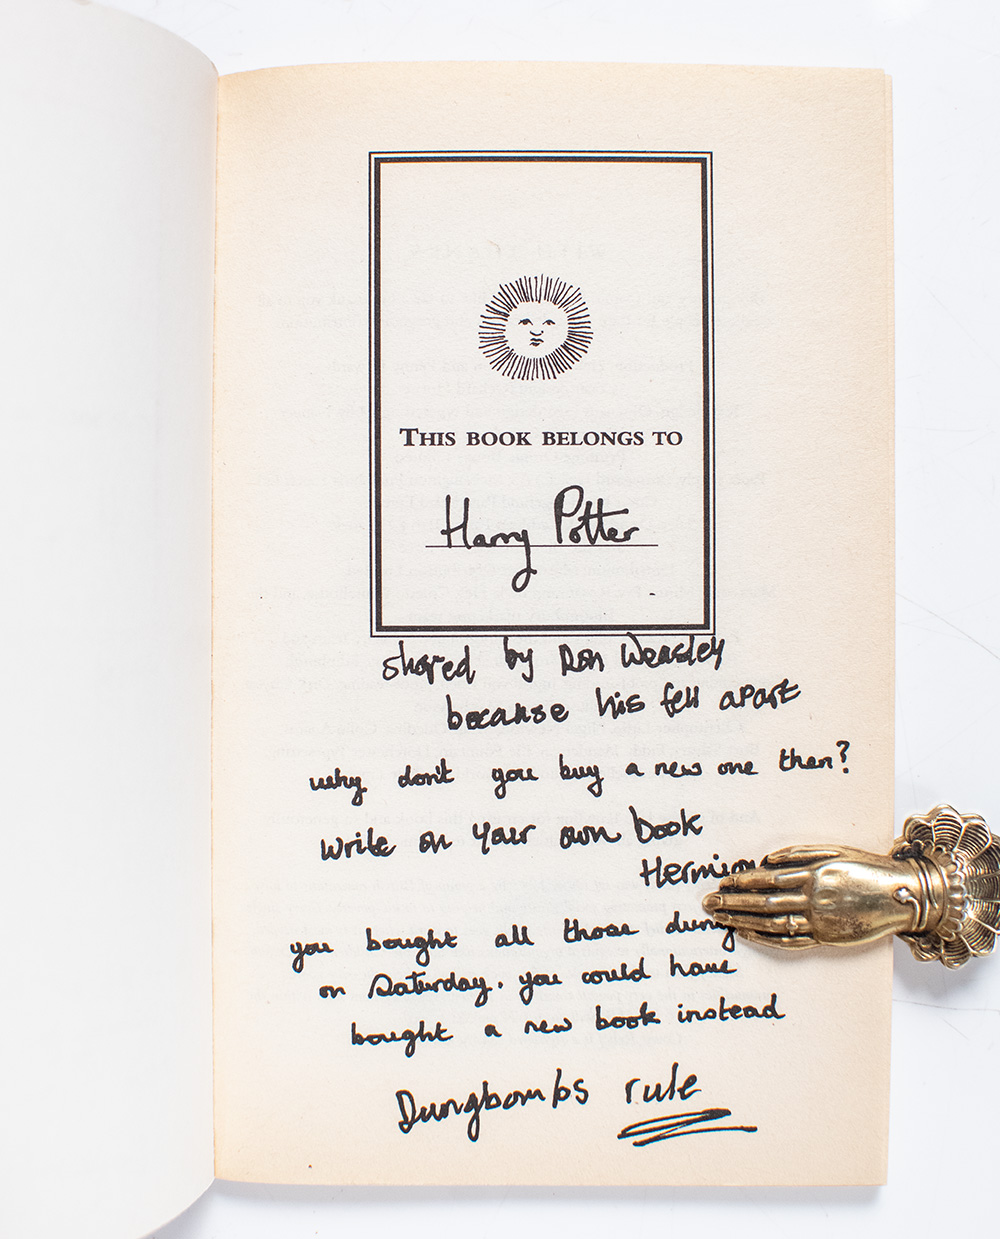 THIS BOOK BELONGS TO
Harry Potter
shared by Ron Weasley
because his fell apart
why don't you buy a new one then?
write on your own book
you bought all those
on Saturday. you could have
bought a new book instead
Dungbombs rule